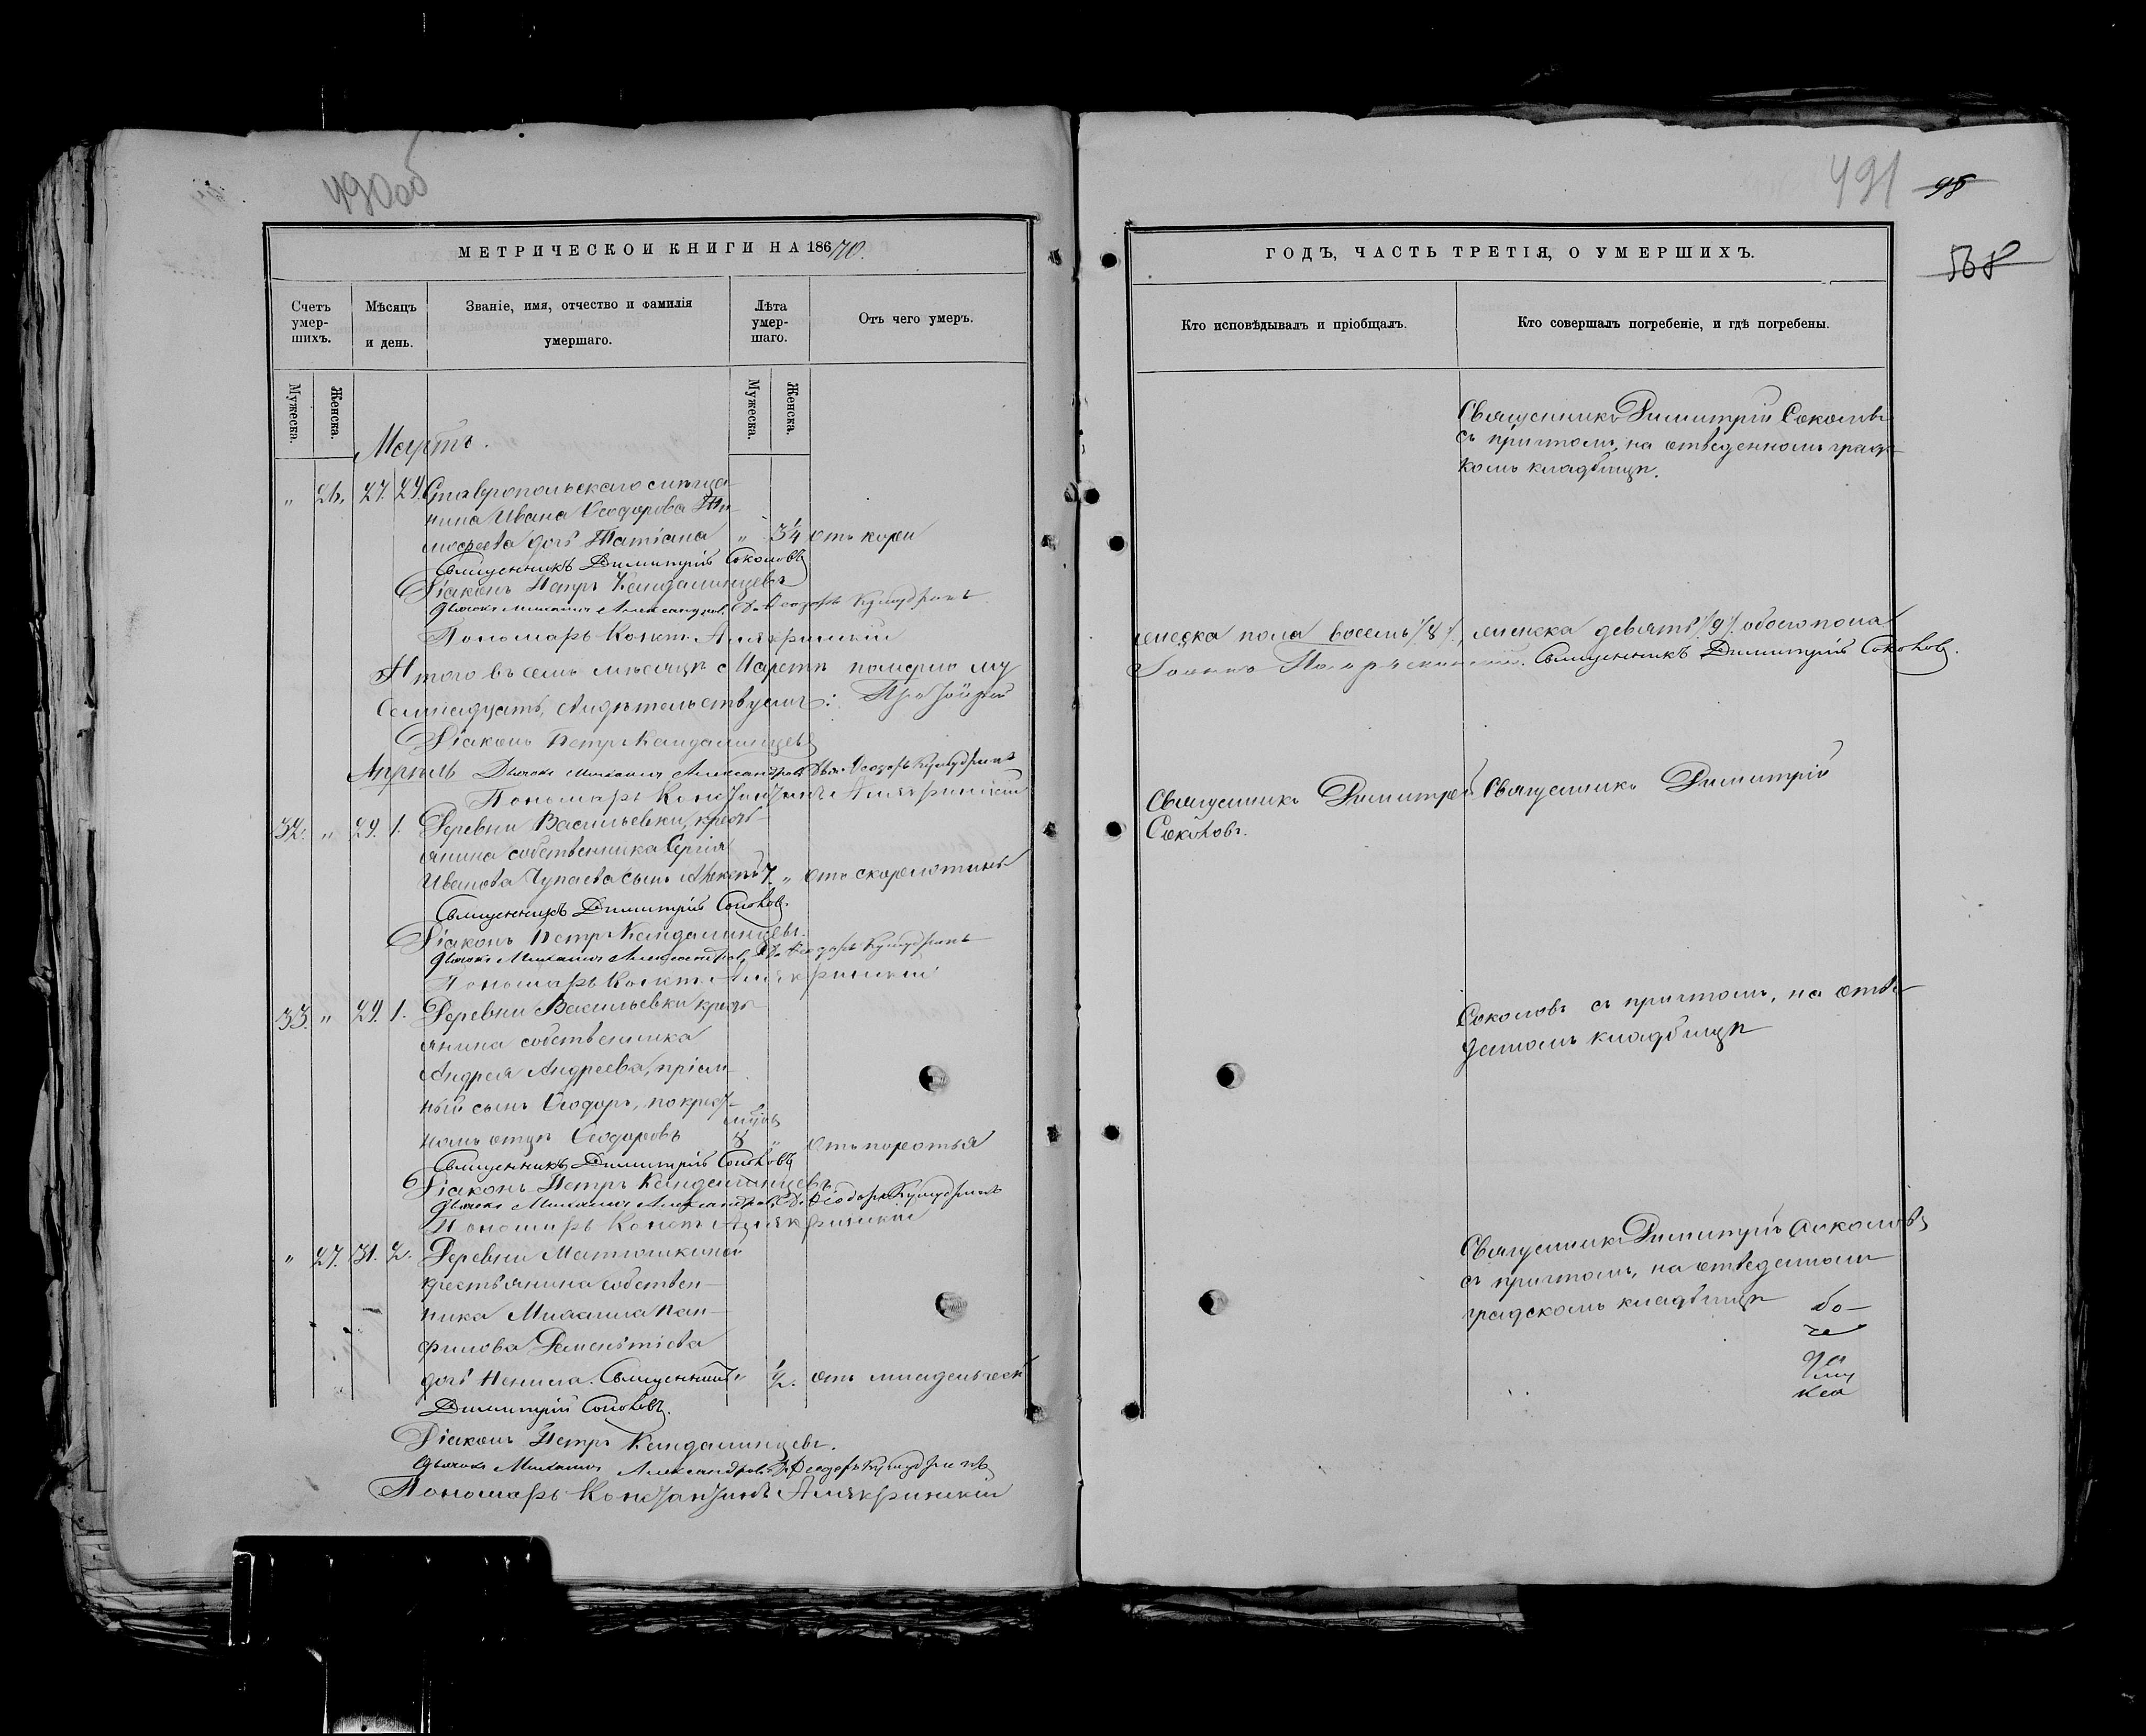 490об
МЕТРИЧЕСКОИ КНИГИ НА 18670.
Счетъ умер-шихъ.
Мѣсяцъ и день.
Званіе, имя, отчество и фамилія умершаго.
Лѣта умер-шаго.
Отъ чего умеръ.
Мужеска.
Женска.
Мужеска.
Женска.
Мартъ.
„ 26. 27. 29. Ставропольскаго мѣща-
нина Ивана Ѳеодорова Ти-
моѳеева дочь Татіана „ 3/4 отъ кори
Священникъ Димитрій Соколовъ
Діаконъ Петръ Кандалинцевъ
Дьячокъ Михаилъ Александровъ
Пономарь Конст.
Итого въ семъ мѣсяцѣ Мартѣ померло му
Семнадцать, свидѣтельствуемъ:
Діаконъ Петръ Кандалинцевъ
Апрѣль Дьячокъ Михаилъ Александровъ
Пономарь Константинъ
32. „ 29. 1. Деревни Васильевки, кресть-
янина собственника Сергія
Иванова Чупаева сынъ 7. „ отъ скарлотины
Священникъ Димитрій Соколовъ
Діаконъ Петръ Кандалинцевъ.
Дьячокъ Михаилъ Александровъ
Пономарь Конст.
33. „ 29. 1. Деревни Васильевки кресть-
янина собственника
Андрея Андреева, пріем-
ный сынъ Ѳеодоръ, по крест-
номъ отцѣ Ѳеодоровъ 8 „ отъ
Священникъ Димитрій Соколовъ
Діаконъ Петръ Кандалинцевъ
Дьячокъ Михаилъ Александровъ
Пономарь Конст.
„ 27. 31. 2. Деревни Матюшкиной
крестьянина собствен-
ника Михаила Пан-
филова Дементіева
дочь Ненила. Священникъ „ 1/2. отъ младенческ
Димитрій Соколовъ.
Діаконъ Петръ Кандалинцевъ.
Дьячокъ Михаилъ Александровъ
Пономарь Константинъ
491
95
ГОДЪ, ЧАСТЬ ТРЕТІЯ, О УМЕРШИХЪ.
Кто исповѣдывалъ и пріобщалъ.
Кто совершалъ погребеніе, и гдѣ погребены.
Священникъ Димитрій Соколовъ
съ причтомъ, на отведенномъ град-
комъ кладбищѣ.
жеска пола восемь /8/, женска девять /9/ обоего пола
Священникъ Димитрій Соколовъ.
Священникъ Димитрій
Соколовъ.
Священникъ Димитрій
Соколовъ съ причтомъ, на отве-
деномъ кладбищѣ
Священникъ Димитрій Соколовъ
съ причтомъ, на отведеномъ
градскомъ кладбищѣ